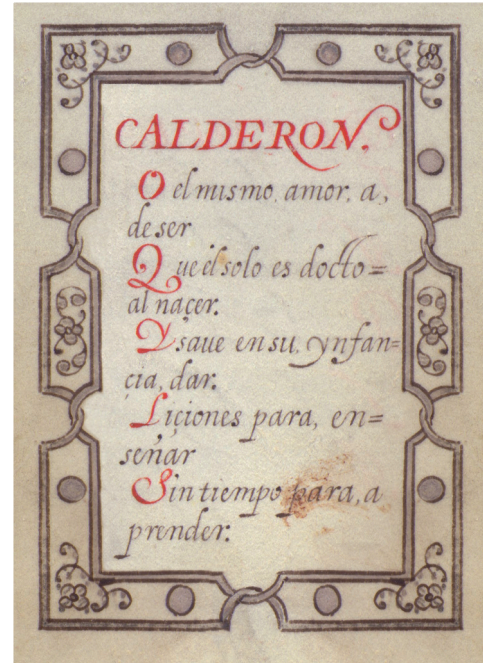 CALDERON.
O el mismo. amor. a,
de ser
Que el solo es docto=
al naçer.
Y saue en su, ynfan=
cia, dar.
Liçiones para, en=
señar
Sin tiempo para, a
prender.